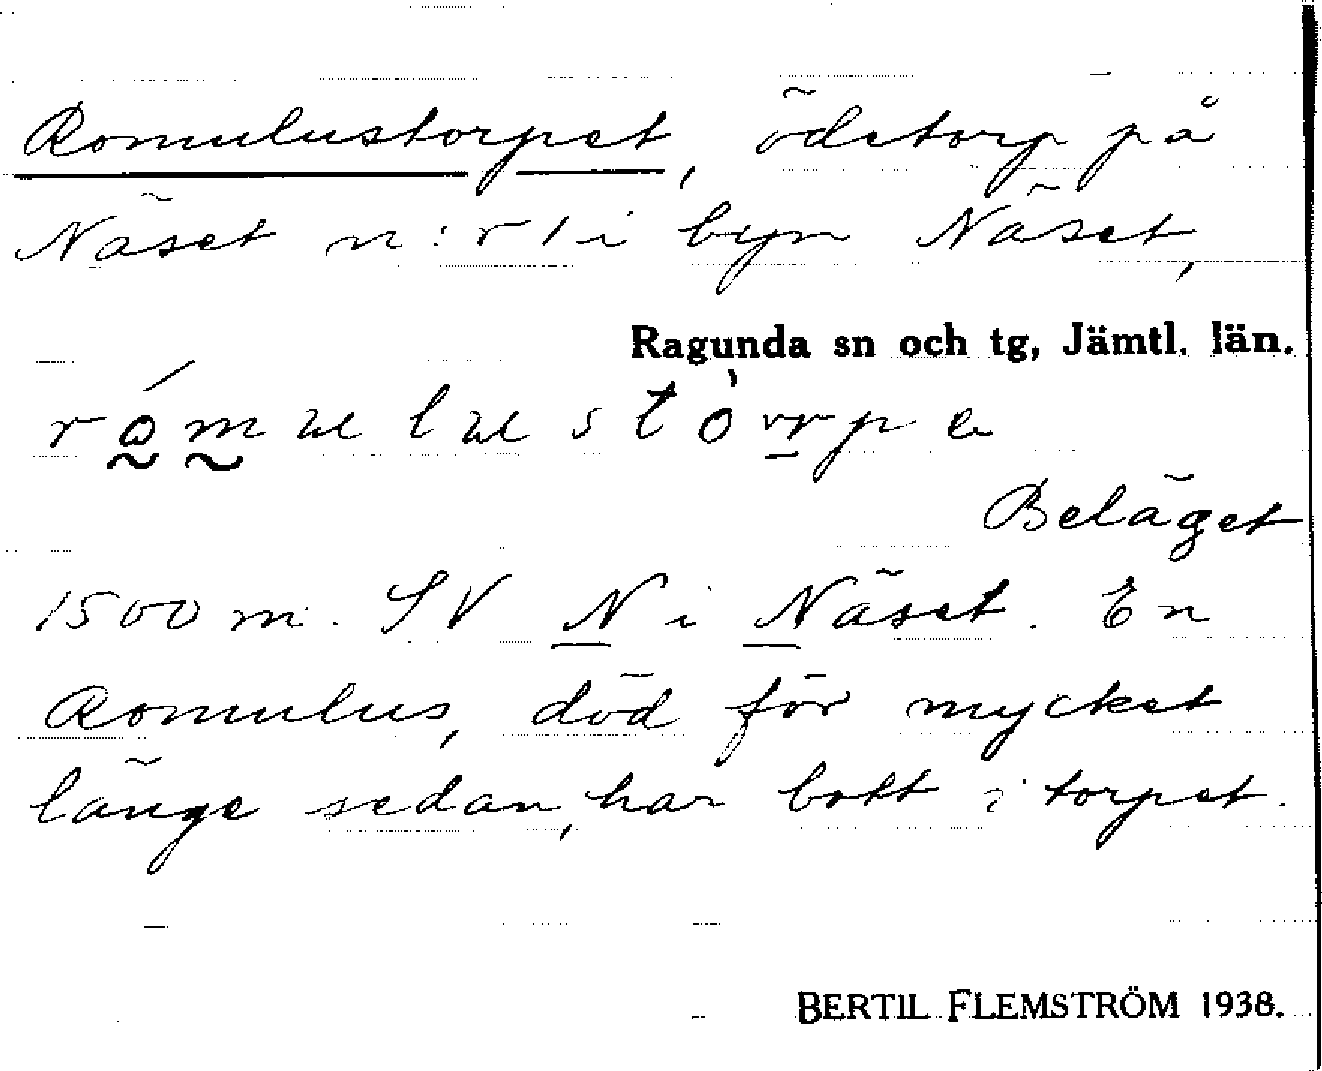 Romulustorpet, ödetorp på
Näset n:r 1 i byn Näset,
Ragunda sn och tg, Jämtl. län.
Beläget
1500 m. SV N i Näset. En
Romulus, död för mycket
länge sedan, har bott i torpet.
BERTIL FLEMSTRÖM 1938.